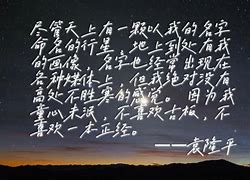 尽管天上有一颗以我的名字
命名的行星，地上到处有我
的画像，名字也经常出现在
各种媒体上，但我绝对没有
高处不胜寒的感觉。因为我
童心未泯，不喜欢古板，不
喜欢一本正经。
——袁隆平